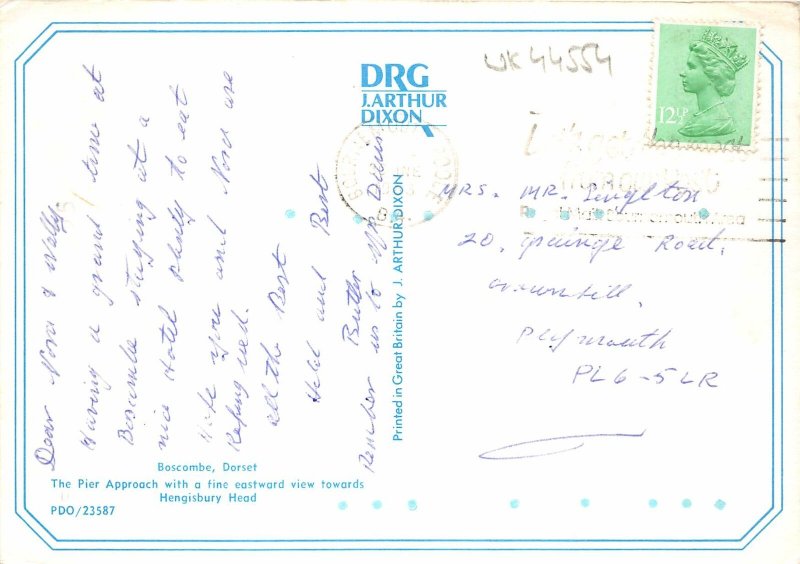 Dear Nora & Wally
Having a grand time at
Boscombe staying at a
nice Hotel plenty to eat
Hope you and Nora are
all the Best
and Best
Butler
Remember us to Mr
DRG
J.ARTHUR
DIXON
Printed in Great Britain by J. ARTHUR DIXON
UK44554
12½P
MRS. MR. Singleton
20, Grainge Road,
Crownhill,
Plymouth
PL6-5LR
Boscombe, Dorset
The Pier Approach with a fine eastward view towards
Hengisbury Head
PDO/23587